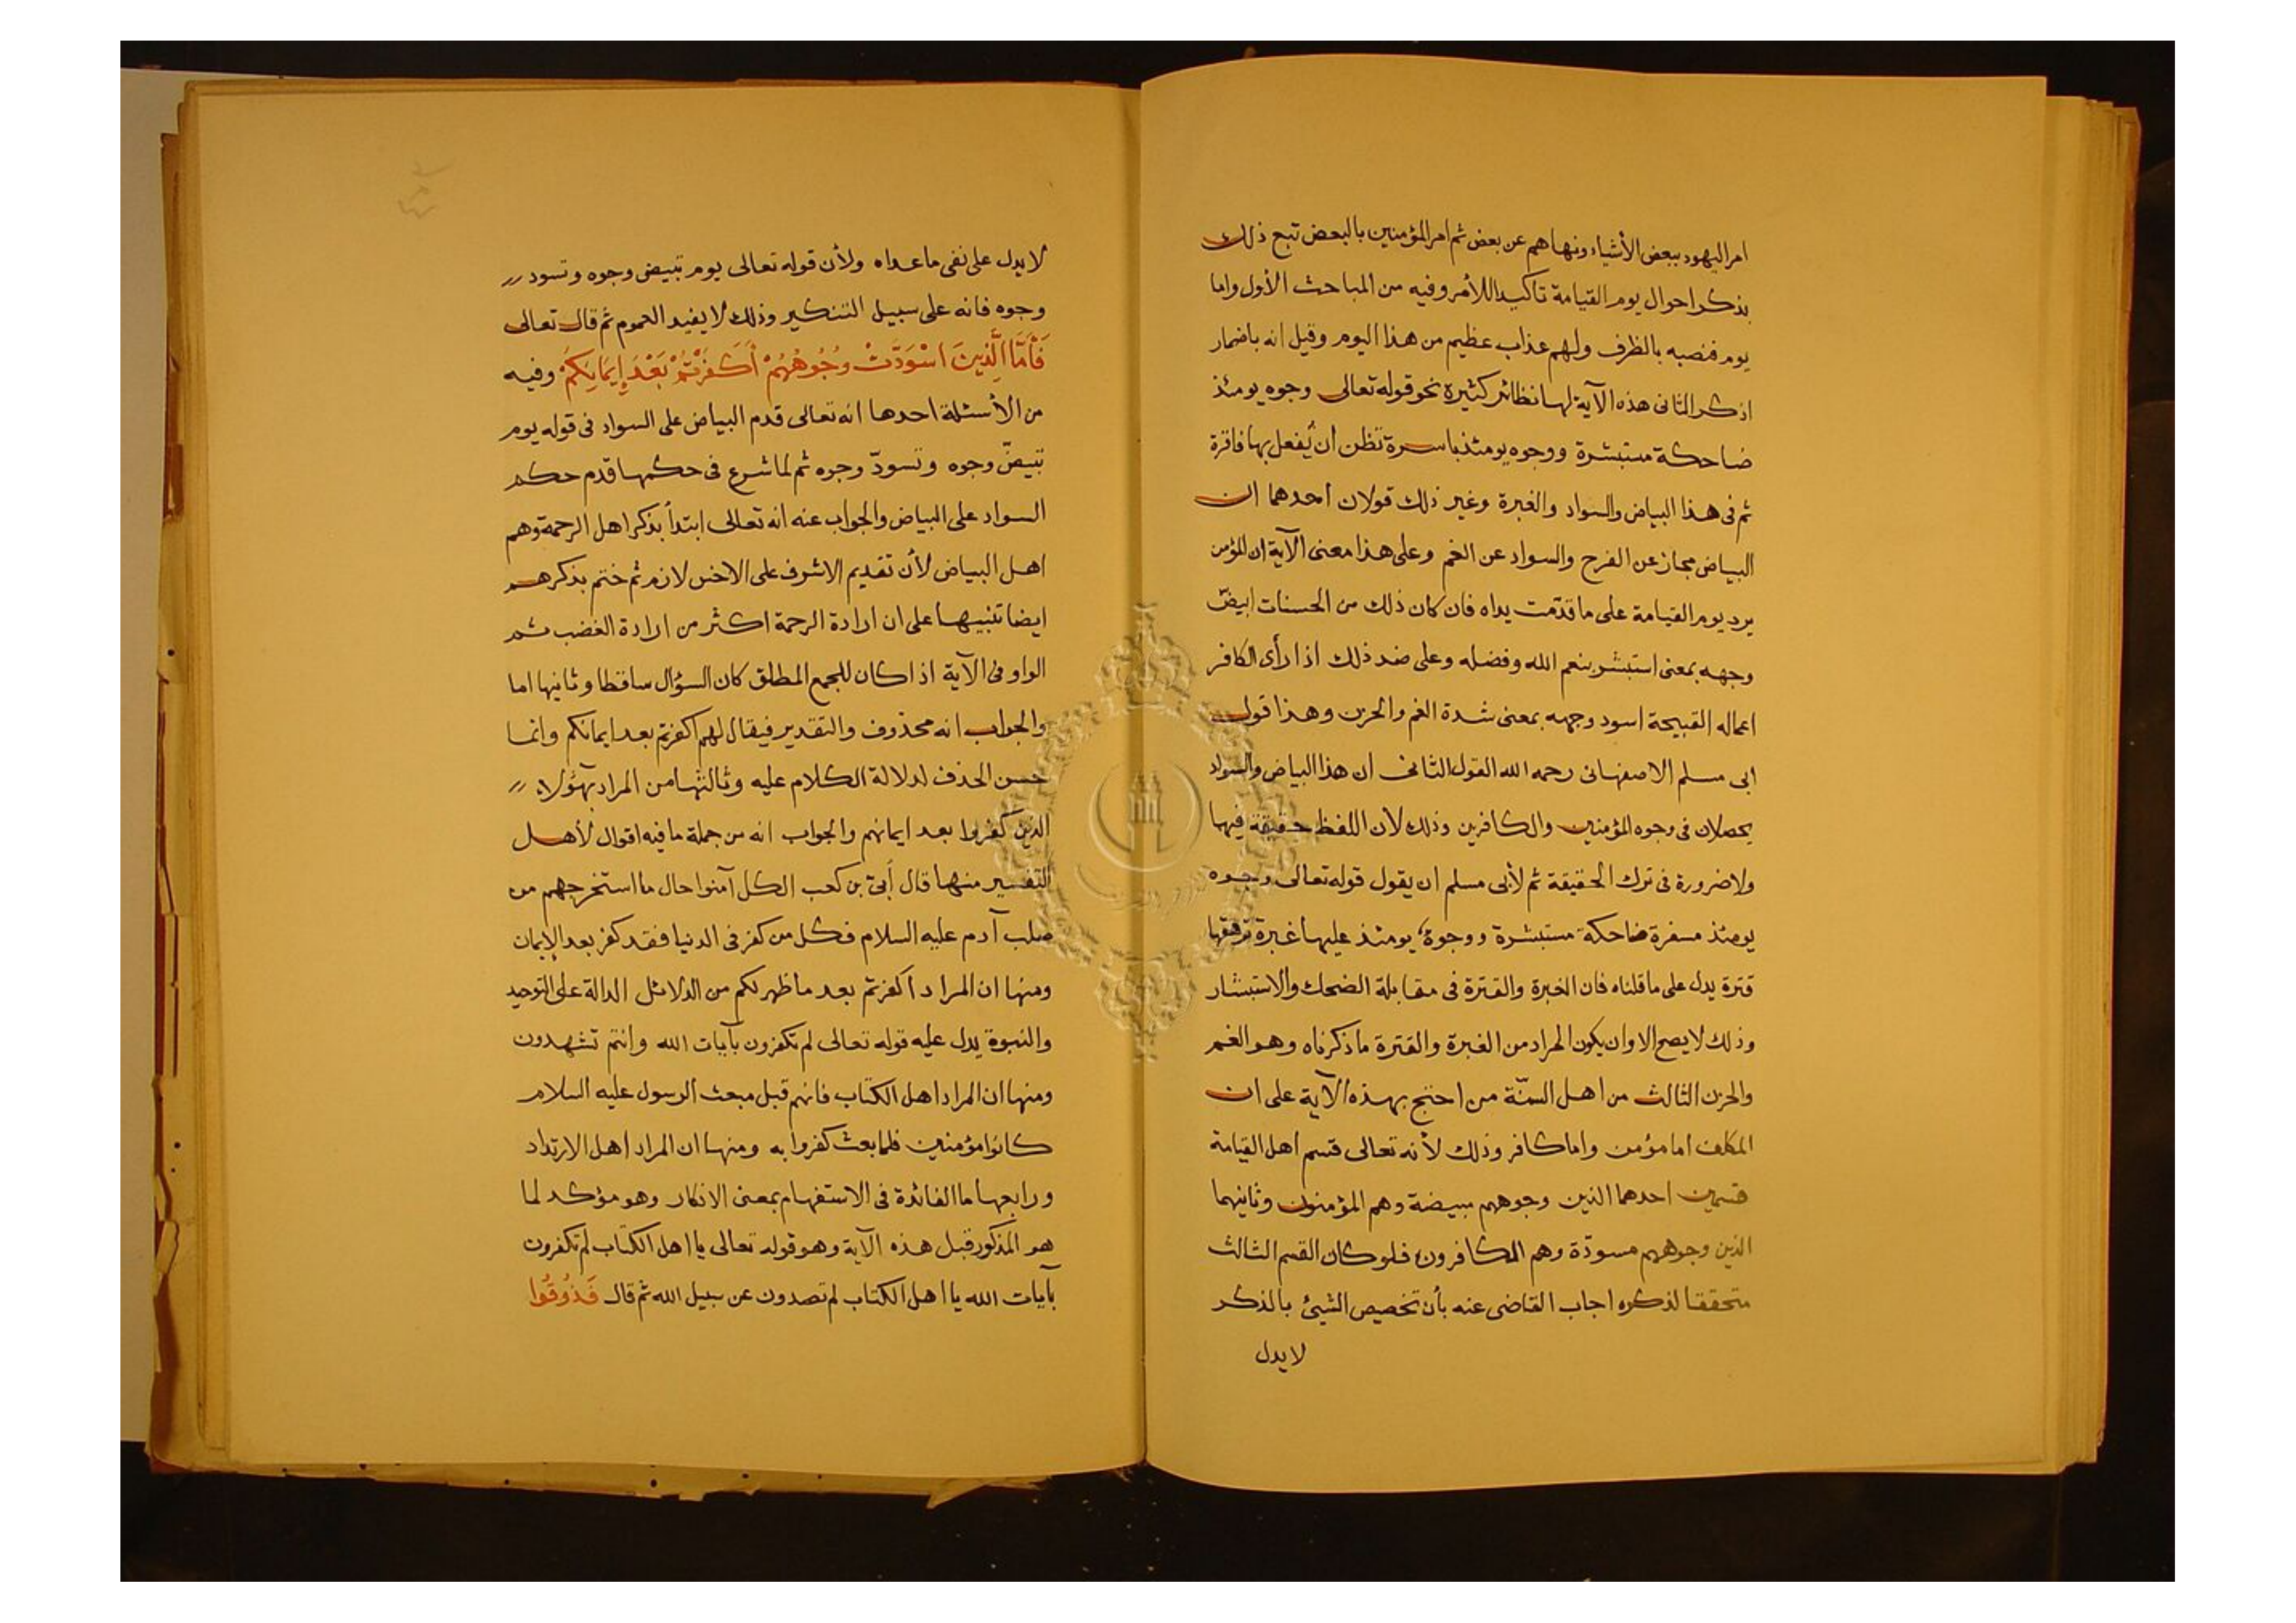 امر اليهود ببعض الأشياء ونهاهم عن بعض ثم امر المؤمنين بالبعض تبع ذلك
بذكر احوال يوم القيامة تأكيدا للأمر وفيه من المباحث الأول واما
يوم فنصبه بالظرف ولهم عذاب عظيم من هذا اليوم وقيل انه باضمار
اذكر الثانى هذه الآية لها نظائر كثيرة نحو قوله تعالى وجوه يومئذ
ضاحكة مستبشرة ووجوه يومئذ باسرة تظن أن يُفعل بها فاقرة
ثم فى هذا البياض والسواد والغبرة وغير ذلك قولان احدهما ان
البياض مجاز عن الفرح والسواد عن الغم وعلى هذا معنى الآية ان المؤمن
يرد يوم القيامة على ما قدّمت يداه فان كان ذلك من الحسنات ابيضّ
وجهه بمعنى استبشر بنعم الله وفضله وعلى ضد ذلك اذا رأى الكافر
اعماله القبيحة اسود وجهه بمعنى شدة الغم والحزن وهذا قول
ابى مسلم الاصفهانى رحمه الله القول الثانى ان هذا البياض والسواد
يحصلان فى وجوه المؤمنين والكافرين وذلك لأن اللفظ حقيقة فيها
ولا ضرورة فى ترك الحقيقة ثم لأبى مسلم ان يقول قوله تعالى وجوه
يومئذ مسفرة ضاحكة مستبشرة ووجوهٌ يومئذ عليها غبرة ترهقها
قترة يدل على ما قلناه فان الغبرة والقترة فى مقابلة الضحك والاستبشار
وذلك لا يصح الا وان يكون المراد من الغبرة والقترة ما ذكرناه وهو الغم
والحزن الثالث من اهل السنّة من احتج بهذه الآية على ان
المكلف اما مؤمن واما كافر وذلك لأنه تعالى قسم اهل القيامة
قسمين احدهما الذين وجوههم مبيضة وهم المؤمنون وثانيهما
الذين وجوههم مسودّة وهم الكافرون فلو كان القسم الثالث
متحققا لذكره اجاب القاضى عنه بأن تخصيص الشيئ بالذكر
لا يدل
لا يدل على نفى ما عداه ولأن قوله تعالى يوم تبيض وجوه وتسود
وجوه فانه على سبيل التنكير وذلك لا يفيد العموم ثم قال تعالى
فَأَمَّا الَّذِينَ اسْوَدَّتْ وُجُوهُهُمْ أَكَفَرْتُمْ بَعْدَ إِيمَانِكُمْ وفيه
من الأسئلة احدها انه تعالى قدم البياض على السواد فى قوله يوم
تبيضّ وجوه وتسودّ وجوه ثم لما شرع فى حكمها قدم حكم
السواد على البياض والجواب عنه انه تعالى ابتدأ بذكر اهل الرحمة وهم
اهل البياض لأن تقديم الاشرف على الاخس لازم ثم ختم بذكرهم
ايضا تنبيها على ان ارادة الرحمة اكثر من ارادة الغضب ثم
الواو فى الآية اذا كان للجمع المطلق كان السؤال ساقطا وثانيها اما
والجواب انه محذوف والتقدير فيقال لهم اكفرتم بعد ايمانكم وانما
حسن الحذف لدلالة الكلام عليه وثالثها من المراد بهؤلاء
الذين كفروا بعد ايمانهم والجواب انه من جملة ما فيه اقوال لأهل
التفسير منها قال أبىّ بن كعب الكل آمنوا حال ما استخرجهم من
صلب آدم عليه السلام فكل من كفر فى الدنيا فقد كفر بعد الإيمان
ومنها ان المراد أكفرتم بعد ما ظهر لكم من الدلائل الدالة على التوحيد
والنبوة يدل عليه قوله تعالى لم تكفرون بآيات الله وانتم تشهدون
ومنها ان المراد اهل الكتاب فانهم قبل مبعث الرسول عليه السلام
كانوا مؤمنين فلما بعث كفروا به ومنها ان المراد اهل الارتداد
ورابعها ما الفائدة فى الاستفهام بمعنى الانكار وهو مؤكد لما
هو المذكور قبل هذه الآية وهو قوله تعالى يا اهل الكتاب لم تكفرون
بآيات الله يا اهل الكتاب لم تصدون عن سبيل الله ثم قال فَذُوقُوا